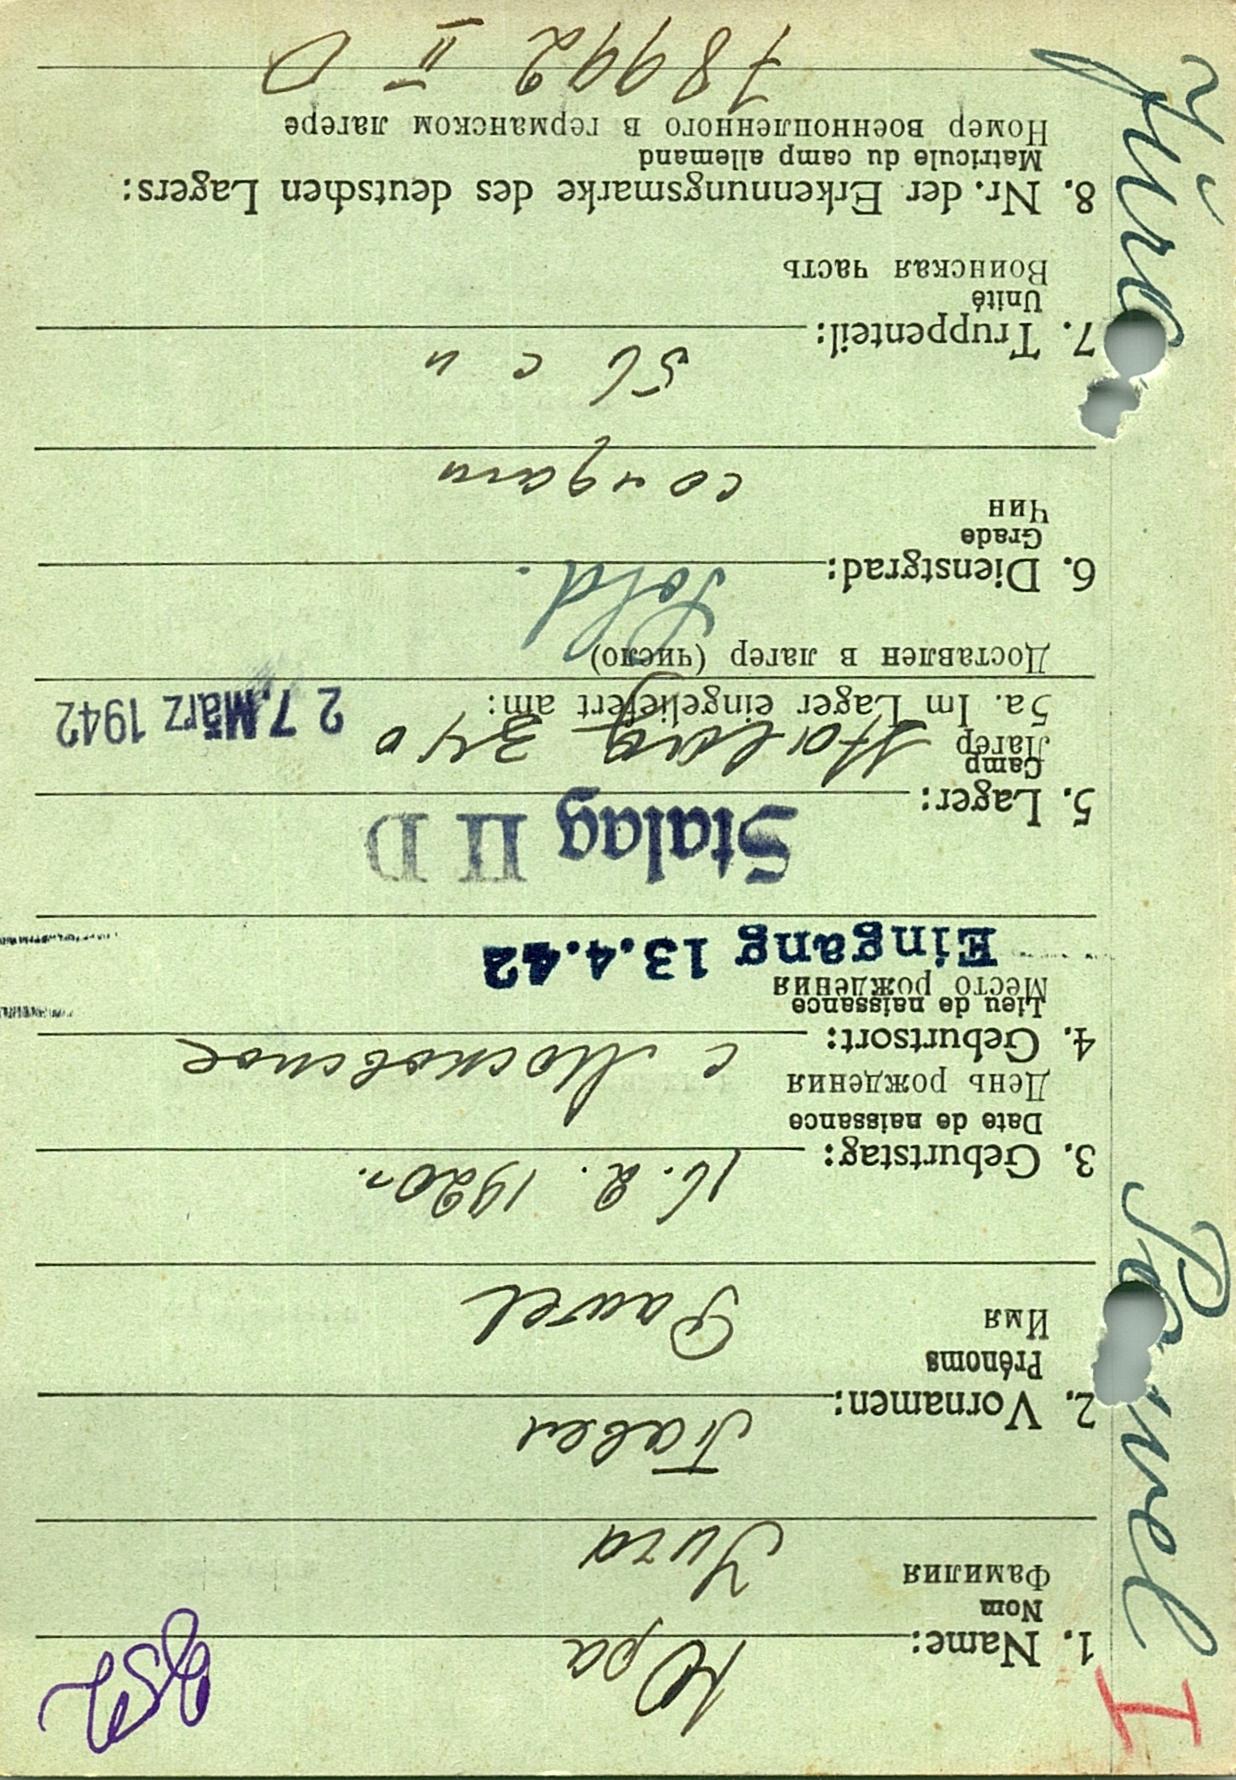 I
852
1. Name: Юра
Nom
Фамилия
Jura
2. Vornamen: Павел
Prénoms
Имя
Pawel
3. Geburtstag: 16. 2. 1920 г.
Date de naissance
День рождения
4. Geburtsort: с Московское
Lieu de naissance
Место рождения
Eingang 13.4.42
Stalag II D
5. Lager: Stalag 340
Camp
Лагер
5a. Im Lager eingeliefert am: 27. März 1942
Доставлен в лагер (число)
6. Dienstgrad: Sold.
Grade
Чин
солдат
7. Truppenteil: 56 с п
Unité
Воинская часть
8. Nr. der Erkennungsmarke des deutschen Lagers:
Matricule du camp allemand
Номер военнопленного в германском лагере
78992 II D
Jura
Pawel